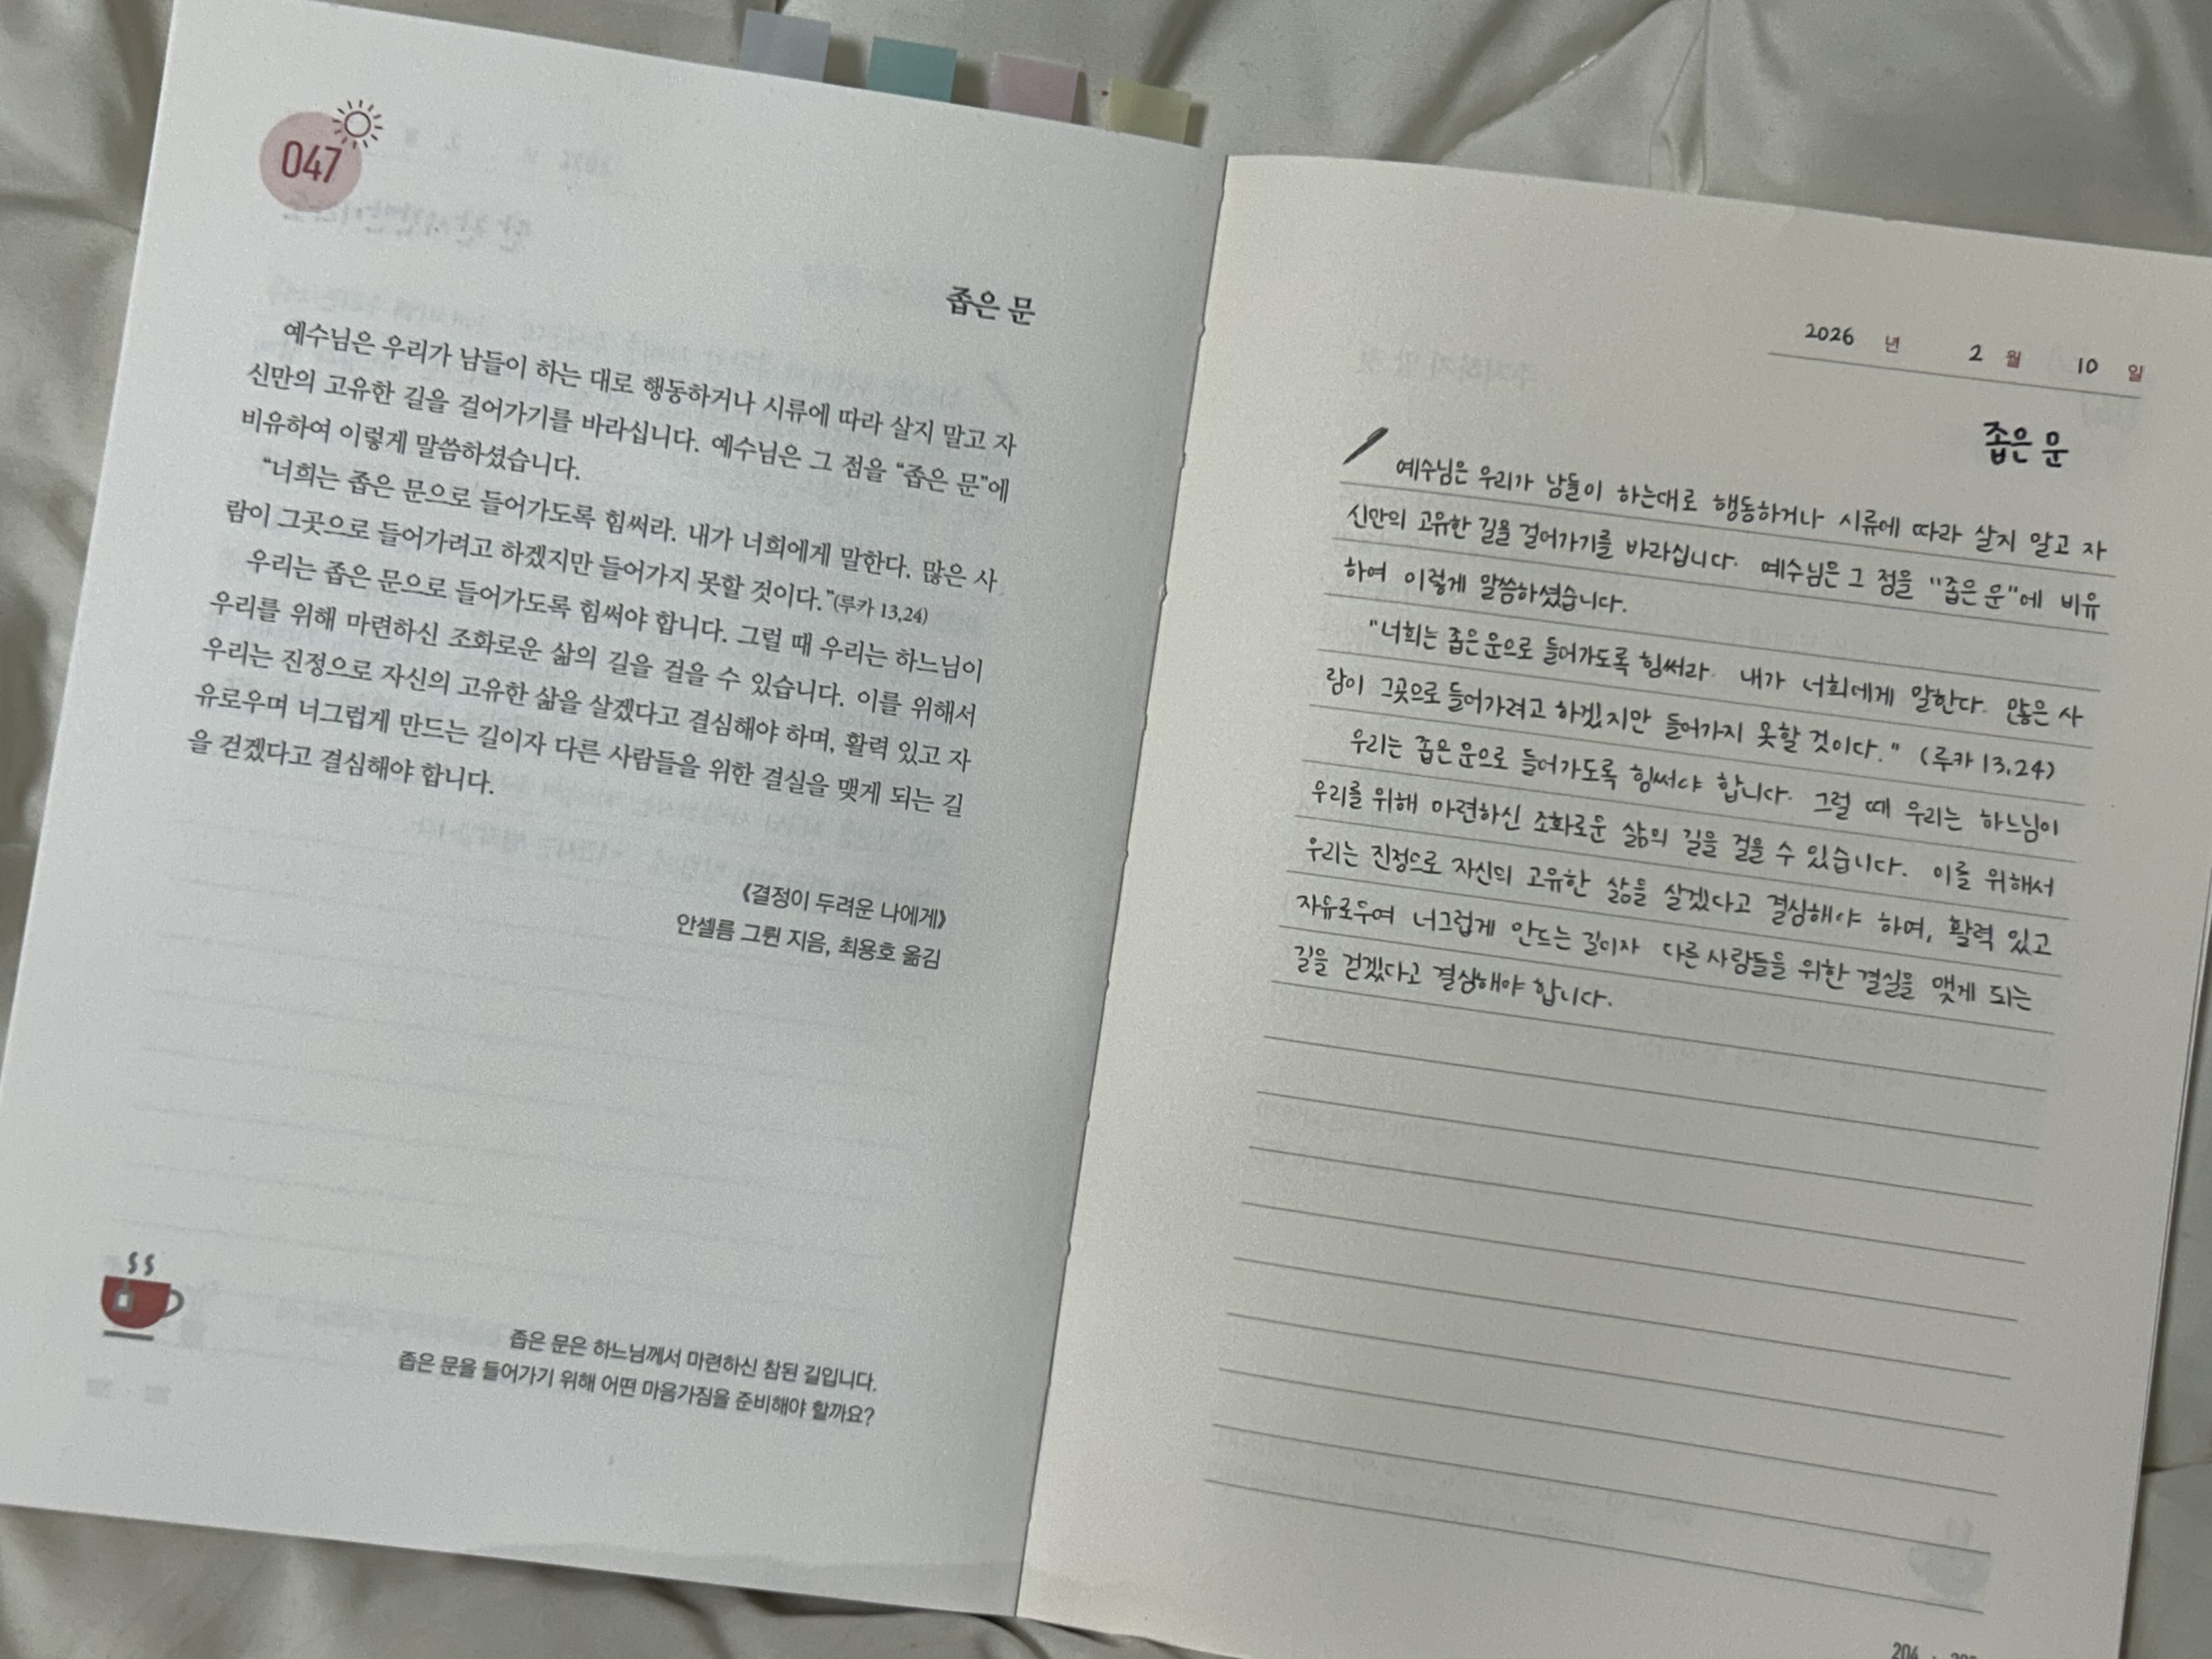 047
좁은 문
예수님은 우리가 남들이 하는 대로 행동하거나 시류에 따라 살지 말고 자
신만의 고유한 길을 걸어가기를 바라십니다. 예수님은 그 점을 “좁은 문”에
비유하여 이렇게 말씀하셨습니다.
“너희는 좁은 문으로 들어가도록 힘써라. 내가 너희에게 말한다. 많은 사
람이 그곳으로 들어가려고 하겠지만 들어가지 못할 것이다.”(루카 13,24)
우리는 좁은 문으로 들어가도록 힘써야 합니다. 그럴 때 우리는 하느님이
우리를 위해 마련하신 조화로운 삶의 길을 걸을 수 있습니다. 이를 위해서
우리는 진정으로 자신의 고유한 삶을 살겠다고 결심해야 하며, 활력 있고 자
유로우며 너그럽게 만드는 길이자 다른 사람들을 위한 결실을 맺게 되는 길
을 걷겠다고 결심해야 합니다.
《결정이 두려운 나에게》
안셀름 그륀 지음, 최용호 옮김
좁은 문은 하느님께서 마련하신 참된 길입니다.
좁은 문을 들어가기 위해 어떤 마음가짐을 준비해야 할까요?
2026 년 2 월 10 일
좁은 문
예수님은 우리가 남들이 하는대로 행동하거나 시류에 따라 살지 말고 자
신만의 고유한 길을 걸어가기를 바라십니다. 예수님은 그 점을 "좁은 문"에 비유
하여 이렇게 말씀하셨습니다.
"너희는 좁은 문으로 들어가도록 힘써라. 내가 너희에게 말한다. 많은 사
람이 그곳으로 들어가려고 하겠지만 들어가지 못할 것이다." (루카 13,24)
우리는 좁은 문으로 들어가도록 힘써야 합니다. 그럴 때 우리는 하느님이
우리를 위해 마련하신 조화로운 삶의 길을 걸을 수 있습니다. 이를 위해서
우리는 진정으로 자신의 고유한 삶을 살겠다고 결심해야 하며, 활력 있고
자유로우며 너그럽게 만드는 길이자 다른 사람들을 위한 결실을 맺게 되는
길을 걷겠다고 결심해야 합니다.
204